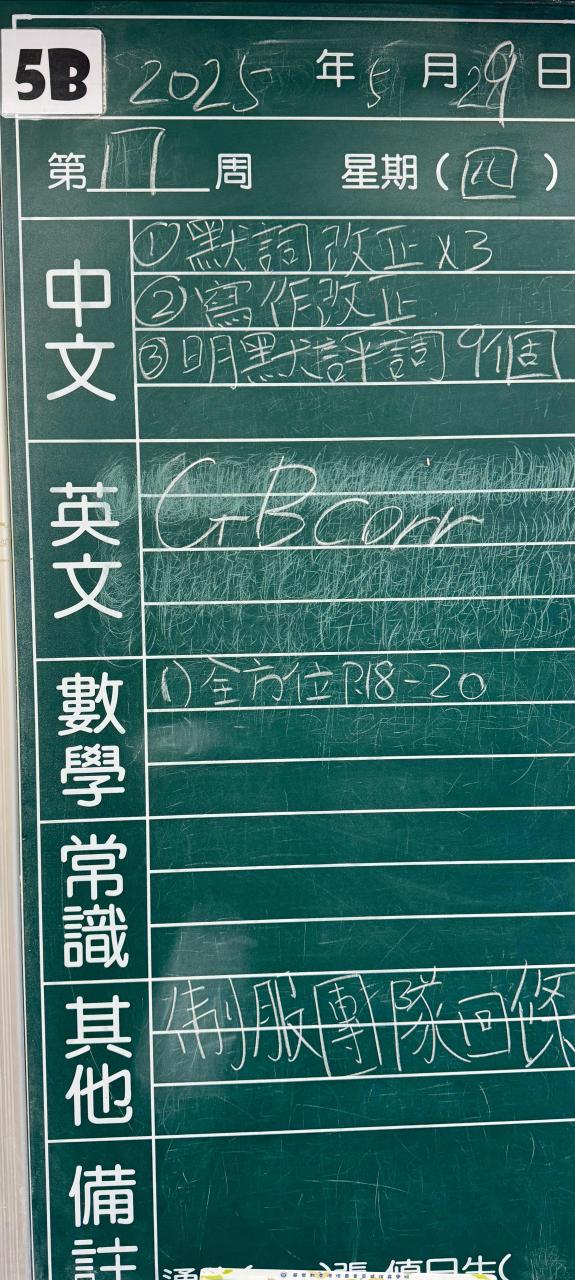 5B
2025年5月29日
第17周 星期（四）
中文
①默詞改正x3
②寫作改正
③明默評詞9個
英文
GB corr
數學
1)全方位P.18-20
常識
其他
制服團隊回條
備註
張 值日生(